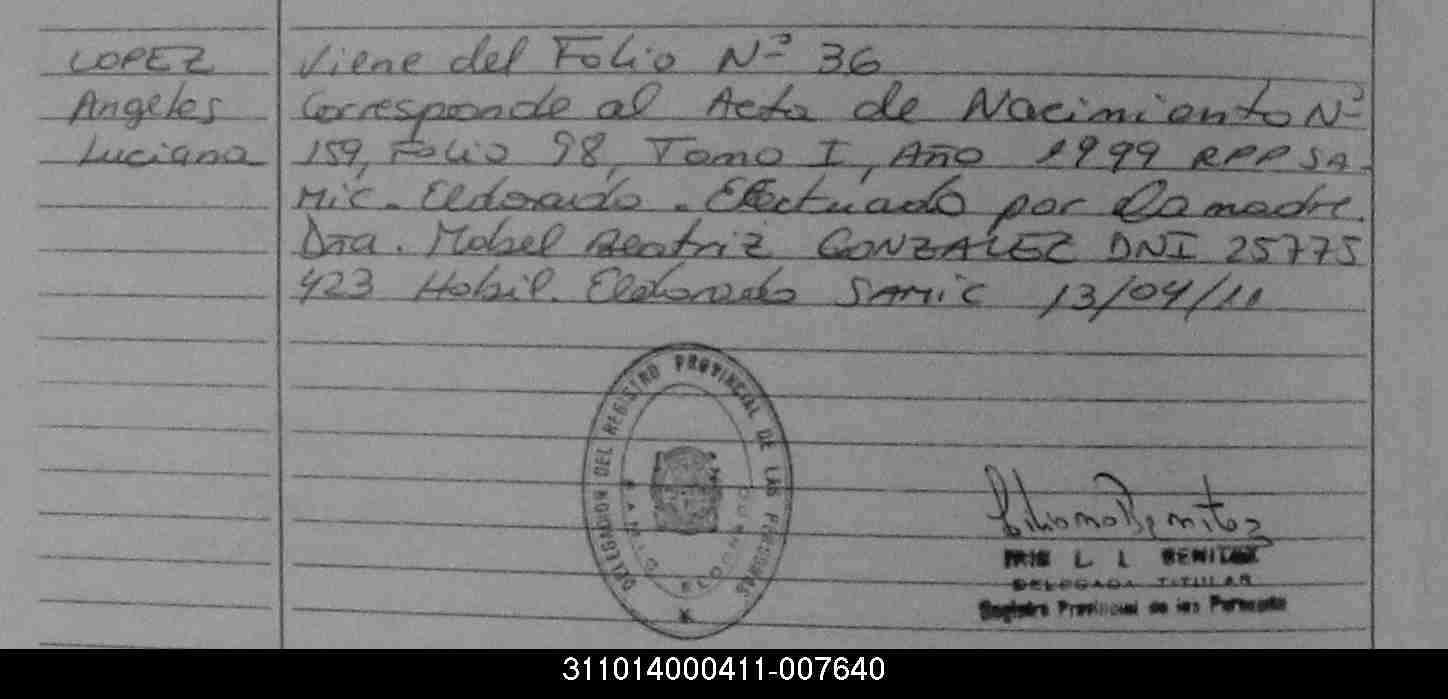 LOPEZ
Angeles
Luciana
Viene del Folio Nº 36
Corresponde al Acta de Nacimiento Nº
159, Folio 98, Tomo I, Año 1999 RPP SA-
Mic. Eldorado. Efectuado por la madre.
Dña. Mabel Beatriz GONZALEZ DNI 25775
423 Habil. Eldorado SAMIC 13/04/11
DELEGACION DEL REGISTRO PROVINCIAL DE LAS PERSONAS
Benitez
L. L. BENITEZ
DELEGADA TITULAR
Registro Provincial de las Personas
311014000411-007640